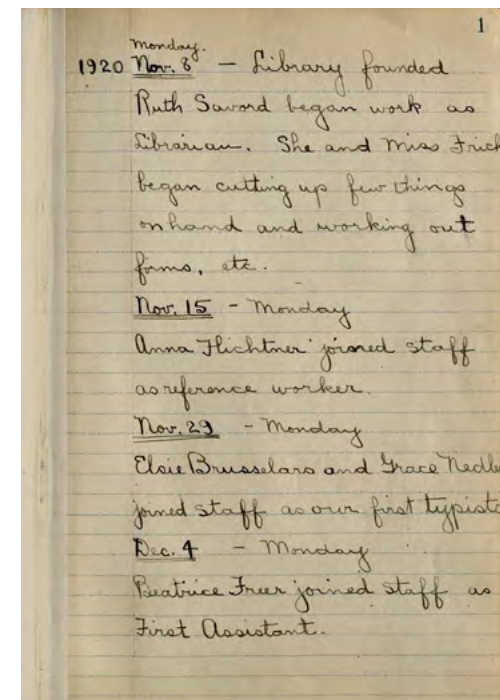 1
Monday.
1920 Nov. 8 – Library founded
Ruth Savord began work as
Librarian. She and Miss Frick
began cutting up few things
on hand and working out
forms, etc.
Nov. 15 - Monday
Anna Flichtner joined staff
as reference worker.
Nov. 29 - Monday
Elsie Brusselars and Grace
joined staff as our first typists
Dec. 4 - Monday
Beatrice Freer joined staff as
First Assistant.